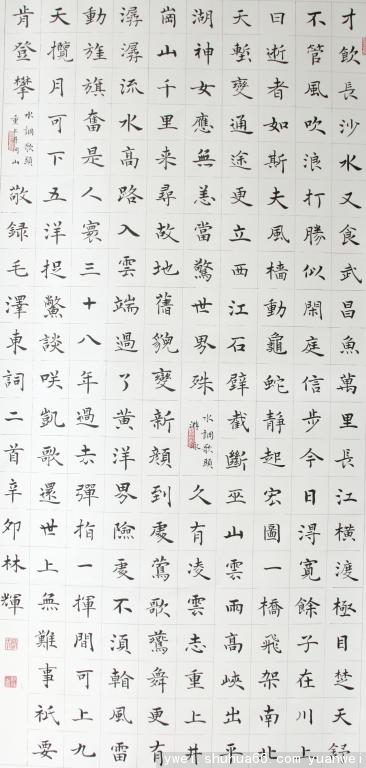 才飲長沙水又食武昌魚萬里長江橫渡極目楚天舒
不管風吹浪打勝似閑庭信步今日淂寬餘子在川上
曰逝者如斯夫風檣動龜蛇靜起宏圖一橋飛架南北
天塹變通途更立西江石壁截斷巫山雲雨高峽出平
湖神女應無恙當驚世界殊
水調歌頭
游泳
久有凌雲志重上井
崗山千里来尋故地舊貌變新顔到處鶯歌鷰舞更有
潺潺流水高路入雲端過了黃洋界險處不湏看風雷
動旌旗奮是人寰三十八年過去彈指一揮間可上九
天攬月可下五洋捉鱉談咲凱歌還世上無難事衹要
肯登攀
水調歌頭
重上井岡山
敬録毛澤東詞二首辛卯林輝
ywei.shuhua66.com yuanwei